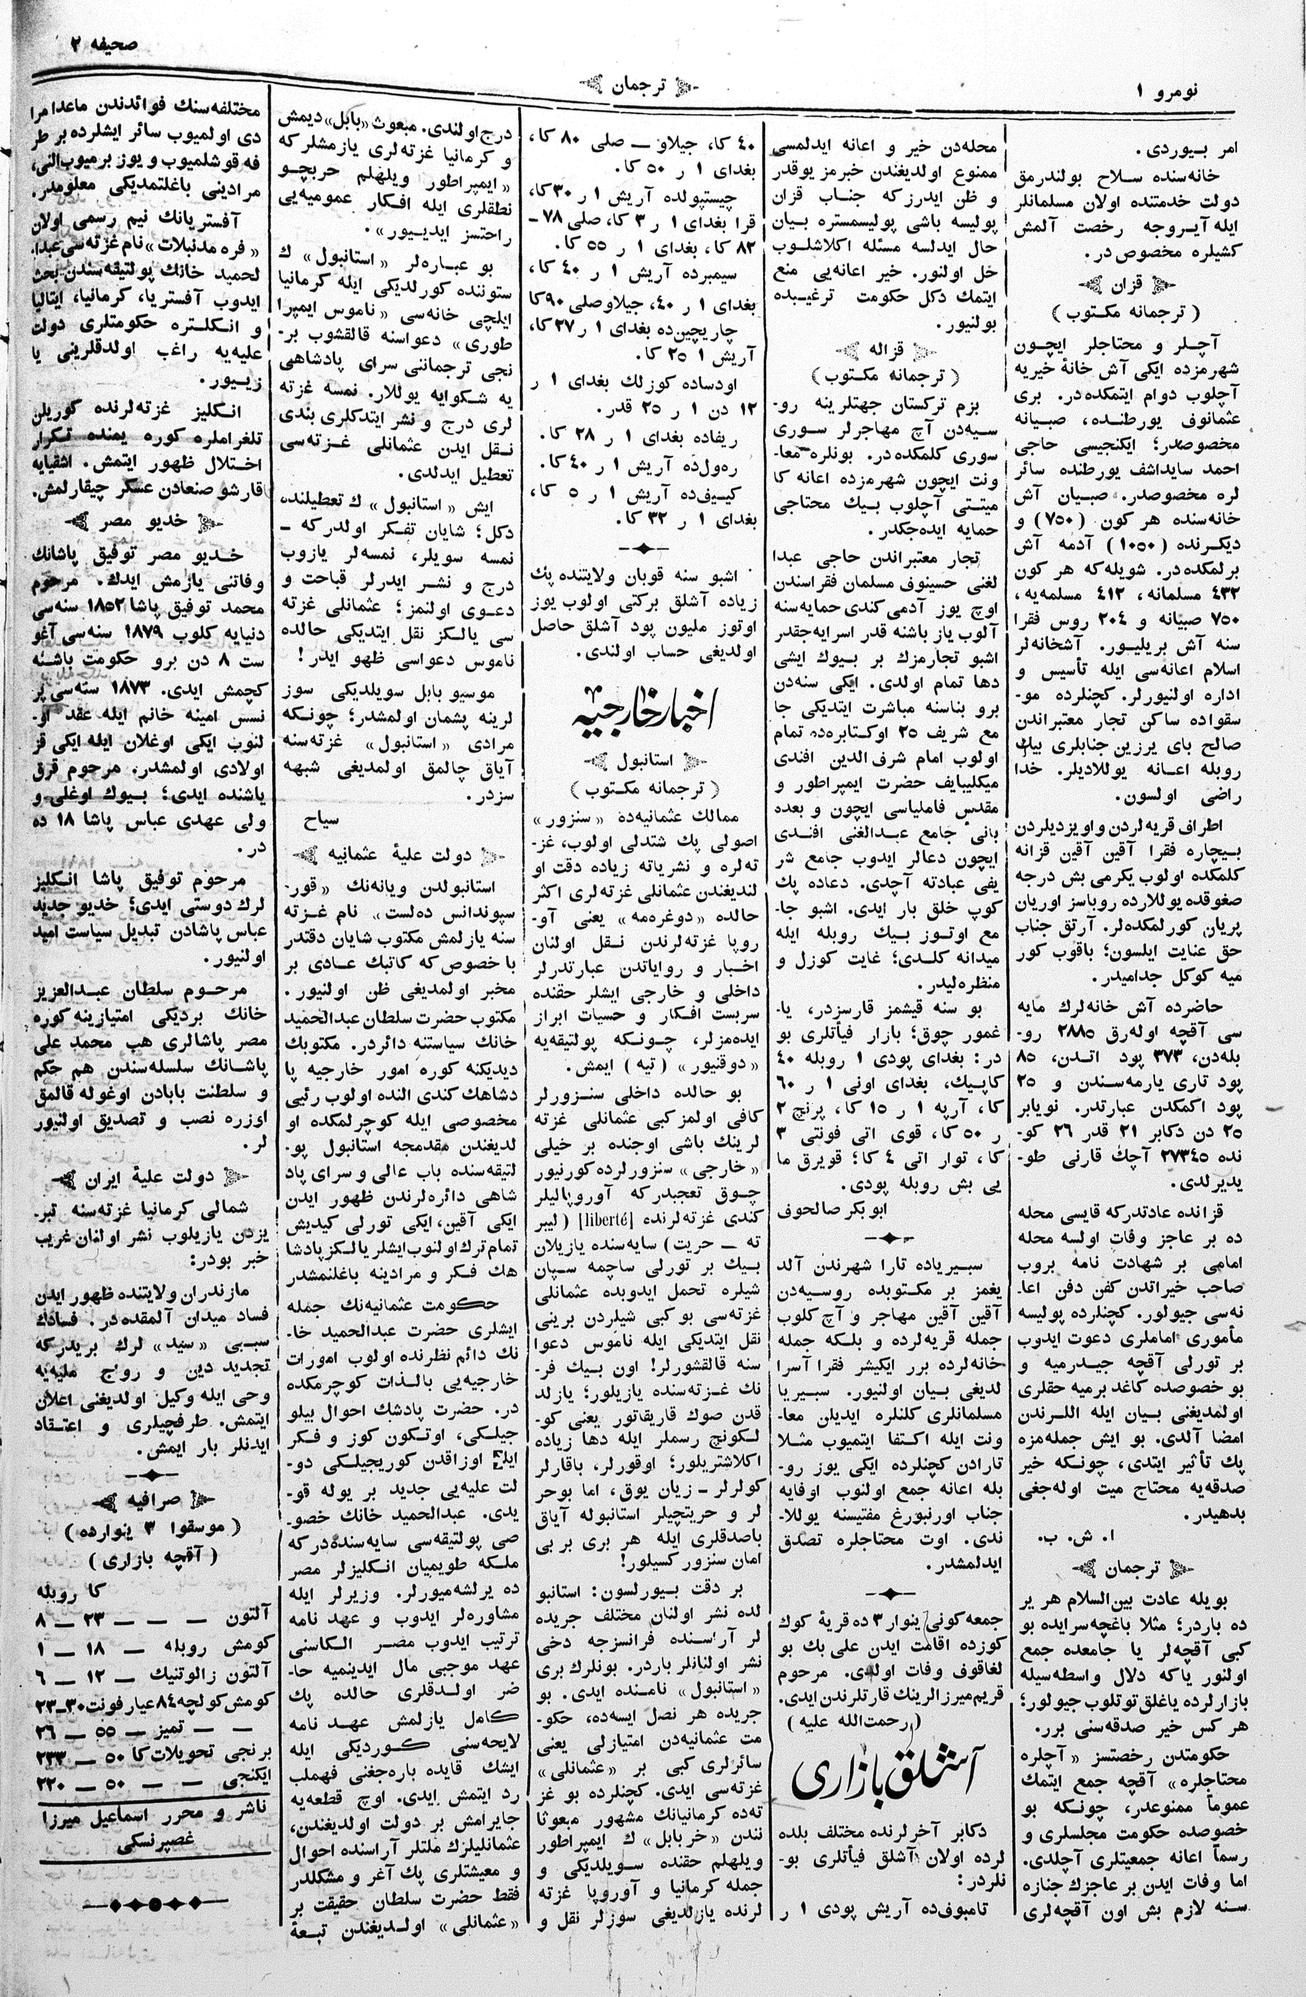 نومرو ۱
ترجمان
صحیفه ۲
امر بیوردی.
خانه‌سنده سلاح بولندرمق
دولت خدمتنده اولان مسلمانلر
ایله آیروجه رخصت آلمش
کشیلره مخصوص در.
قزان
( ترجمانه مکتوب )
آچلر و محتاجلر ایچون
شهرمزده ایکی آش خانهٔ خیریه
آچلوب دوام ایتمکده در. بری
عثمانوف یورطنده، صبیانه
مخصوصدر؛ ایکنجیسی حاجی
احمد سایداشف یورطنده سائر
لره مخصوصدر. صبیان آش
خانه‌سنده هر کون (۷۵۰) و
دیکرنده (۱۰۵۰) آدمه آش
برلمکده در. شویله‌که هر کون
۴۳۲ مسلمانه، ۴۱۲ مسلمه‌یه،
۷۵۰ صبیانه و ۲۰۴ روس فقرا
سنه آش بریلیور. آشخانه‌لر
اسلام اعانه‌سی ایله تأسیس و
اداره اولنیورلر. کچنلرده مو-
سقواده ساکن تجار معتبراندن
صالح بای یرزین جنابلری بیك
روبله اعانه یوللادیلر. خدا
راضی اولسون.
اطراف قریه‌لردن و اویزدیلردن
بیچاره فقرا آقین آقین قزانه
کلمکده اولوب یکرمی بش درجه
صغوقده یوللارده روباسز اوریان
پریان کورلمکده‌لر. آرتق جناب
حق عنایت ایلسون؛ باقوب کور
میه کوکل جدامیدر.
حاضرده آش خانه‌لرك مایه
سی آقچه اوله‌رق ۲۸۸۵ رو-
بله‌دن، ۳۷۳ پود اتدن، ۸۵
پود تاری یارمه‌سندن و ۲۵
پود اکمکدن عبارتدر. نویابر
۲۵ دن دکابر ۲۱ قدر ۲۶ کو-
نده ۲۷۳۴۵ آچك قارنی طو-
یدیرلدی.
قزانده عادتدرکه قایسی محله
ده بر عاجز وفات اولسه محله
امامی بر شهادت نامه بروب
صاحب خیراتدن کفن دفن اعا-
نه‌سی جیولور. کچنلرده پولیسه
مأموری اماملری دعوت ایدوب
بر تورلی آقچه جیدرمیه و
بو خصوصده کاغد برمیه حقلری
اولمدیغی بیان ایله اللرندن
امضا آلدی. بو ایش جمله‌مزه
پك تأثیر ایتدی، چونکه خیر
صدقه‌یه محتاج میت اوله‌جغی
بدهیدر.
ا. ش. ب.
ترجمان
بویله عادت بین‌السلام هر یر
ده باردر؛ مثلا باغچه‌سرایده بو
کبی آقچه‌لر یا جامعده جمع
اولنور یاکه دلال واسطه‌سیله
بازارلرده یاغلق توتلوب جیولور؛
هر کس خیر صدقه‌سنی برر.
حکومتدن رخصتسز «آچلره
محتاجلره» آقچه جمع ایتمك
عموماً ممنوعدر، چونکه بو
خصوصده حکومت مجلسلری و
رسماً اعانه جمعیتلری آچلدی.
اما وفات ایدن بر عاجزك جنازه
سنه لازم بش اون آقچه‌لری
محله‌دن خیر و اعانه ایدلمسی
ممنوع اولدیغندن خبرمز یوقدر
و ظن ایدرزکه جناب قزان
پولیسه باشی پولیسمستره بیان
حال ایدلسه مسئله اکلاشلوب
خل اولنور. خیر اعانه‌یی منع
ایتمك دکل حکومت ترغیبده
بولنیور.
قزاله
( ترجمانه مکتوب )
بزم ترکستان جهتلرینه رو-
سیه‌دن آچ مهاجرلر سوری
سوری کلمکده در. بونلره معا-
ونت ایچون شهرمزده اعانه کا
میتتی آچلوب بیك محتاجی
حمایه ایده‌جکدر.
تجار معتبراندن حاجی عبدا
لغنی حسینوف مسلمان فقراسندن
اوچ یوز آدمی کندی حمایه‌سنه
آلوب یاز باشنه قدر اسرایه‌جقدر
اشبو تجارمزك بر بیوك ایشی
دها تمام اولدی. ایکی سنه‌دن
برو بناسنه مباشرت ایتدیکی جا
مع شریف ۲۵ اوکتابرده تمام
اولوب امام شرف الدین افندی
میکلیبایف حضرت ایمپراطور و
مقدس فاملیاسی ایچون و بعده
بانی جامع عبدالغنی افندی
ایچون دعالر ایدوب جامع شر
یفی عبادته آچدی. دعاده پك
کوپ خلق بار ایدی. اشبو جا-
مع اوتوز بیك روبله ایله
میدانه کلدی؛ غایت کوزل و
منظره‌لیدر.
بو سنه قیشمز قارسزدر، یا-
غمور چوق؛ بازار فیأتلری بو
در: بغدای پودی ۱ روبله ۴۰
کاپیك، بغدای اونی ۱ ر ۶۰
کا، آرپه ۱ ر ۱۵ کا، پرنچ ۲
ر ۵۰ کا، قوی اتی فونتی ۳
کا، توار اتی ۴ کا؛ قویرق ما
یی بش روبله پودی.
ابو بکر صالحوف
سیبریاده تارا شهرندن آلد
یغمز بر مکتوبده روسیه‌دن
آقین آقین مهاجر و آچ کلوب
جمله قریه‌لرده و بلکه جمله
خانه‌لرده برر ایکیشر فقرا آسرا
لدیغی بیان اولنیور. سبیریا
مسلمانلری کلنلره ایدیلن معا-
ونت ایله اکتفا ایتمیوب مثلا
تارادن کچنلرده ایکی یوز رو-
بله اعانه جمع اولنوب اوفایه
جناب اورنبورغ مفتیسنه یوللا-
ندی. اوت محتاجلره تصدق
ایدلمشدر.
جمعه کونی ینوار ۳ ده قریهٔ کوك
کوزده اقامت ایدن علی بك بو
لغاقوف وفات اولدی. مرحوم
قریم میرزالرینك قارتلرندن ایدی.
( رحمت‌الله علیه )
آشلق بازاری
دکابر آخرلرنده مختلف بلده
لرده اولان آشلق فیأتلری بو-
نلردر:
تامبوف‌ده آریش پودی ۱ ر
۴۰ کا، جیلاو — صلی ۸۰ کا،
بغدای ۱ ر ۵۰ کا.
چیستپولده آریش ۱ ر ۳۰ کا،
قرا بغدای ۱ ر ۳ کا، صلی ۷۸-
۸۲ کا، بغدای ۱ ر ۵۵ کا.
سیمبرده آریش ۱ ر ۴۰ کا،
بغدای ۱ ر ۴۰، جیلاوصلی ۹۰ کا
چاریچین‌ده بغدای ۱ ر ۲۷ کا،
آریش ۱ ۲۵ کا.
اودساده کوزلك بغدای ۱ ر
۱۲ دن ۱ ر ۲۵ قدر.
ریفاده بغدای ۱ ر ۲۸ کا.
ره‌ول‌ده آریش ۱ ر ۴۰ کا.
کییف‌ده آریش ۱ ر ۵ کا،
بغدای ۱ ر ۳۲ کا.
اشبو سنه قوبان ولایتنده پك
زیاده آشلق برکتی اولوب یوز
اوتوز ملیون پود آشلق حاصل
اولدیغی حساب اولندی.
اخبار خارجیه
استانبول
( ترجمانه مکتوب )
ممالك عثمانیه‌ده «سنزور»
اصولی پك شتدلی اولوب، غز-
ته‌لره و نشریاته زیاده دقت او
لندیغندن عثمانلی غزته‌لری اکثر
حالده «دوغرمه» یعنی آو-
روپا غزته‌لرندن نقل اولنان
اخبار و روایاتدن عبارتدرلر
داخلی و خارجی ایشلر حقنده
سربست افکار و حسیات ابراز
ایده‌مزلر، چونکه پولتیقه‌یه
«دوقنیور» (تیه) ایمش.
بو حالده داخلی سنزورلر
کافی اولمز کبی عثمانلی غزته
لرینك باشی اوجنده بر خیلی
«خارجی» سنزورلرده کورنیور
چوق تعجبدرکه آوروپالیلر
کندی غزته‌لرنده [liberté] (لیبر
ته — حریت) سایه‌سنده یازیلان
بیك بر تورلی ساچمه سپان
شیلره تحمل ایدوبده عثمانلی
غزته‌سی بو کبی شیلردن برینی
نقل ایتدیکی ایله ناموس دعوا
سنه قالقشورلر! اون بیك فر-
نك غزته‌سنده یازیلور؛ یازلد
قدن صوك قاریقاتور یعنی کو-
لکونچ رسملر ایله دها زیاده
اکلاشتریلور؛ اوقورلر، باقارلر
کولرلر- زیان یوق، اما بوحر
لر و حریتچیلر استانبوله آیاق
باصدقلری ایله هر بری بر بی
امان سنزور کسیلور!
بر دقت بیورلسون: استانبو
لده نشر اولنان مختلف جریده
لر آراسنده فرانسزجه دخی
نشر اولنانلر باردر. بونلرك بری
«استانبول» نامنده ایدی. بو
جریده هر نصل ایسه‌ده، حکو-
مت عثمانیه‌دن امتیازلی یعنی
سائرلری کبی بر «عثمانلی»
غزته‌سی ایدی. کچنلرده بو غز
ته‌ده کرمانیانك مشهور مبعوثا
نندن «خر بابل» ك ایمپراطور
ویلهلم حقنده سویلدیکی و
جمله کرمانیا و آوروپا غزته
لرنده یازلدیغی سوزلر نقل و
درج اولندی. مبعوث «بابل» دیمش
و کرمانیا غزته‌لری یازمشلرکه
«ایمپراطور ویلهلم حربچو
نطقلری ایله افکار عمومیه‌یی
راحتسز ایدییور».
بو عباره‌لر «استانبول» ك
ستوننده کورلدیکی ایله کرمانیا
ایلچی خانه‌سی «ناموس ایمپرا
طوری» دعواسنه قالقشوب بر-
نجی ترجماننی سرای پادشاهی
یه شکوایه یوللار. نمسه غزته
لری درج و نشر ایتدکلری بندی
نقل ایدن عثمانلی غزته‌سی
تعطیل ایدلدی.
ایش «استانبول» ك تعطیلنده
دکل؛ شایان تفکر اولدرکه —
نمسه سویلر، نمسه‌لر یازوب
درج و نشر ایدرلر قباحت و
دعوی اولنمز؛ عثمانلی غزته
سی یالکز نقل ایتدیکی حالده
ناموس دعواسی ظهو ایدر!
موسیو بابل سویلدیکی سوز
لرینه پشمان اولمشدر؛ چونکه
مرادی «استانبول» غزته‌سنه
آیاق چالمق اولمدیغی شبهه
سزدر.
سیاح
دولت علیهٔ عثمانیه
استانبولدن ویانه‌نك «قور-
سپوندانس ده‌لست» نام غزته
سنه یازلمش مکتوب شایان دقتدر
با خصوص که کاتبك عادی بر
مخبر اولمدیغی ظن اولنیور.
مکتوب حضرت سلطان عبدالحمید
خانك سیاستنه دائردر. مکتوبك
دیدیکنه کوره امور خارجیه پا
دشاهك کندی النده اولوب رئیی
مخصوصی ایله کوچرلمکده او
لدیغندن مقدمجه استانبول پو-
لتیقه‌سنده باب عالی و سرای پاد
شاهی دائره‌لرندن ظهور ایدن
ایکی آقین، ایکی تورلی کیدیش
تمام ترك اولنوب ایشلر یالکز پادشا
هك فکر و مرادینه باغلنمشدر
حکومت عثمانیه‌نك جمله
ایشلری حضرت عبدالحمید خا-
نك دائم نظرنده اولوب امورات
خارجیه‌یی بالذات کوچرمکده
در. حضرت پادشك احوال بیلو
جیلکی، اوتکون کوز و فکر
ایله اوزاقدن کوریجیلکی دو-
لت علیه‌یی جدید بر یوله قو-
یدی. عبدالحمید خانك خصو-
صی پولتیقه‌سی سایه‌سنده‌درکه
ملکه طویمیان انکلیزلر مصر
ده یرلشه‌میورلر. وزیرلر ایله
مشاوره‌لر ایدوب و عهد نامه
ترتیب ایدوب مصر الکاسنی
عهد موجبی مال ایدینمیه حا-
ضر اولدقلری حالده پك
کامل یازلمش عهد نامه
لایحه‌سنی کوردیکی ایله
ایشك قایده باره‌جغنی فهملب
رد ایتمش ایدی. اوچ قطعه‌یه
جایرامش بر دولت اولدیغندن،
عثمانلیلرك ملتلر آراسنده احوال
و معیشتلری پك آغر و مشکلدر
فقط حضرت سلطان حقیقت بر
«عثمانلی» اولدیغندن تبعهٔ
مختلفه‌سنك فوائدندن ماعدا مرا
دی اولمیوب سائر ایشلرده بر طر
فه قوشلمیوب و یوز برمیوب النی،
مرادینی باغلتمدیکی معلومدر.
آفستریانك نیم رسمی اولان
«فره مدنبلات» نام غزته‌سی عبدا.
لحمید خانك پولتیقه‌سندن بحث
ایدوب آفستریا، کرمانیا، ایتالیا
و انکلتره حکومتلری دولت
علیه‌یه راغب اولدقلرینی یا
زییور.
انکلیز غزته‌لرنده کوریلن
تلغراملره کوره یمنده تکرار
اختلال ظهور ایتمش. اشقیایه
قارشو صنعادن عسکر چیقارلمش.
خدیو مصر
خدیو مصر توفیق پاشانك
وفاتنی یازمش ایدك. مرحوم
محمد توفیق پاشا ۱۸۵۲ سنه‌سی
دنیایه کلوب ۱۸۷۹ سنه‌سی آغو
ست ۸ دن برو حکومت باشنه
کچمش ایدی. ۱۸۷۳ سنه‌سی پر
نسس امینه خانم ایله عقد او-
لنوب ایکی اوغلان ایله ایکی قز
اولادی اولمشدر. مرحوم قرق
یاشنده ایدی؛ بیوك اوغلی و
ولی عهدی عباس پاشا ۱۸ ده
در.
مرحوم توفیق پاشا انکلیز
لرك دوستی ایدی؛ خدیو جدید
عباس پاشادن تبدیل سیاست امید
اولنیور.
مرحوم سلطان عبدالعزیز
خانك بردیکی امتیازینه کوره
مصر پاشالری هب محمد علی
پاشانك سلسله‌سندن هم حکم
و سلطنت بابادن اوغوله قالمق
اوزره نصب و تصدیق اولنیور
لر.
دولت علیهٔ ایران
شمالی کرمانیا غزته‌سنه تبر-
یزدن یازیلوب نشر اولنان غریب
خبر بودر:
مازندران ولایتنده ظهور ایدن
فساد میدان آلمقده در. فسادك
سببی «سید» لرك بریدرکه
تجدید دین و رواج ملیه‌یه
وحی ایله وکیل اولدیغنی اعلان
ایتمش. طرفچیلری و اعتقاد
ایدنلر بار ایمش.
صرافیه
( موسقوا ۳ ینوارده )
( آقچه بازاری )
کا روبله
آلتون — — ۲۳ — ۸
کومش روبله — ۱۸ — ۱
آلتون زالوتنیك — ۱۲ — ۶
کومش کولچه ۸۴ عیار فونت ۳۰-۲۳
— — تمیز — ۵۵ — ۲۶
برنجی تحویلات کا ۵۰ — ۲۳۳
ایکنجی — — ۵۰ — ۲۲۰
ناشر و محرر اسماعیل میرزا
غصپرنسکی